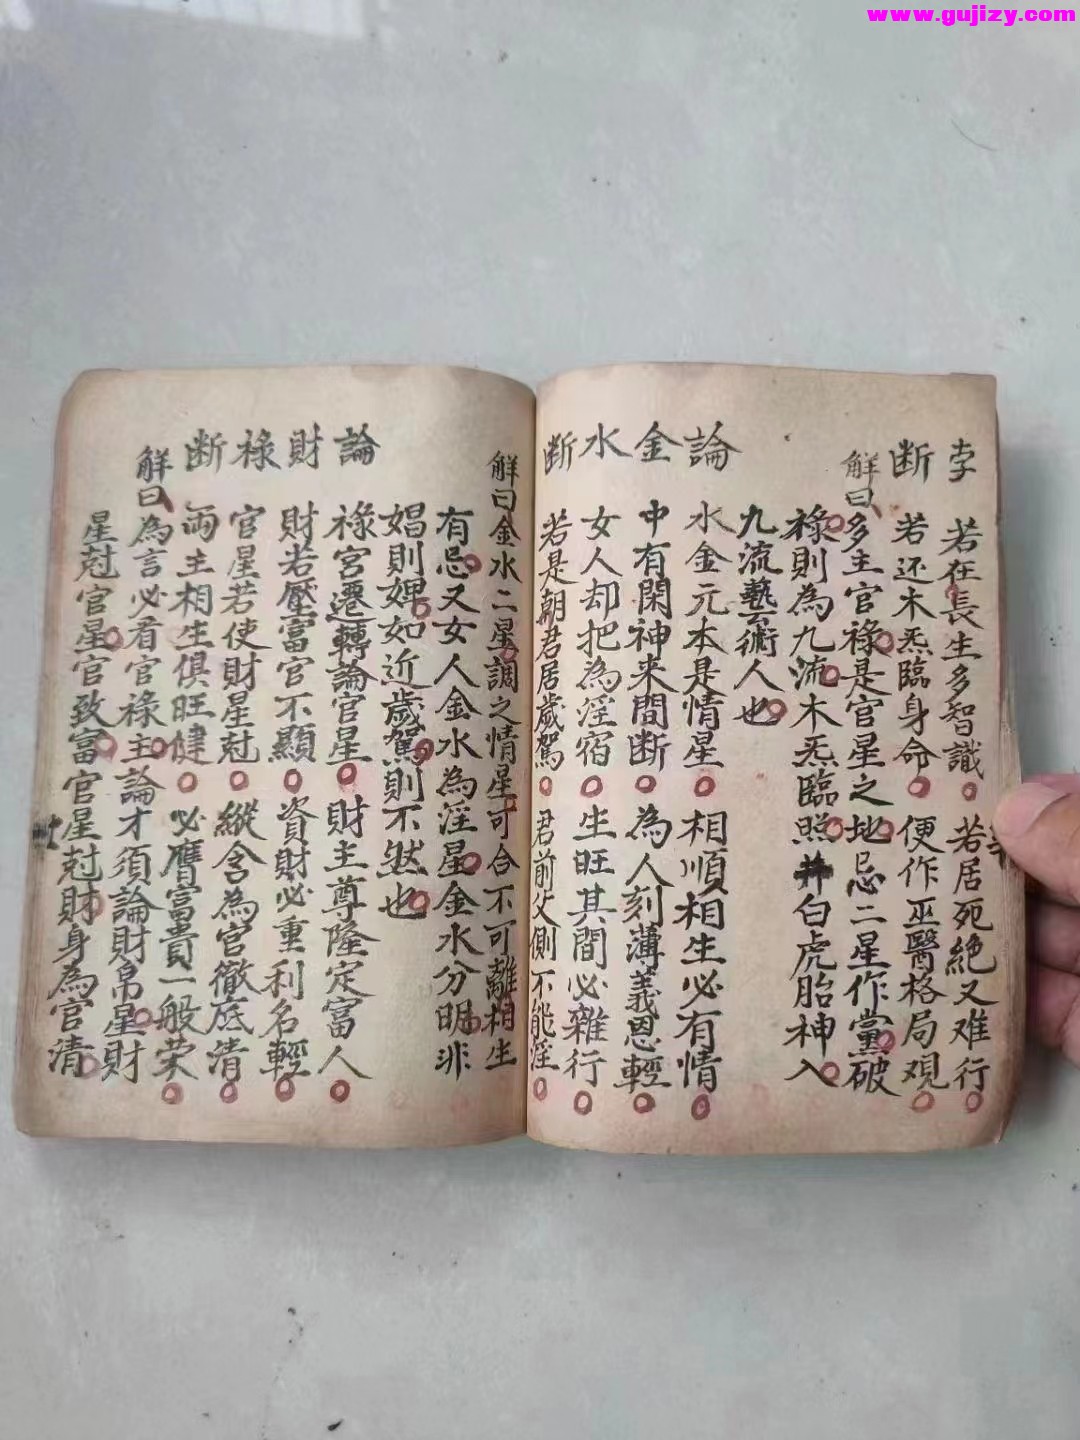 www.gujizy.com
孛 若在長生多智識 若居死絶又难行
断 若还木炁臨身命 便作巫醫格局观
解曰多主官祿是官星之地忌二星作黨破
祿則為九流木炁臨照 白虎胎神入
九流藝術人也
論 水金元本是情星 相順相生必有情
金 中有閑神来間断 為人刻薄義恩輕
水 女人却把為淫宿 生旺其間必雜行
断 若是朝君居歲駕 君前父側不能淫
解曰金水二星調之情星可合不可離相生
有忌又女人金水為淫星金水分明非
娼則婢如近歲駕則不然也
論 祿宮遷轉論官星 財主尊隆定富人
財 財若壓富官不顯 資財必重利名輕
祿 官星若使財星尅 縱含為官徹底清
断 両主相生俱旺健 必膺富貴一般荣
解曰為言必看官祿主論才須論財帛星財
星尅官星官致富官星尅財身為官清